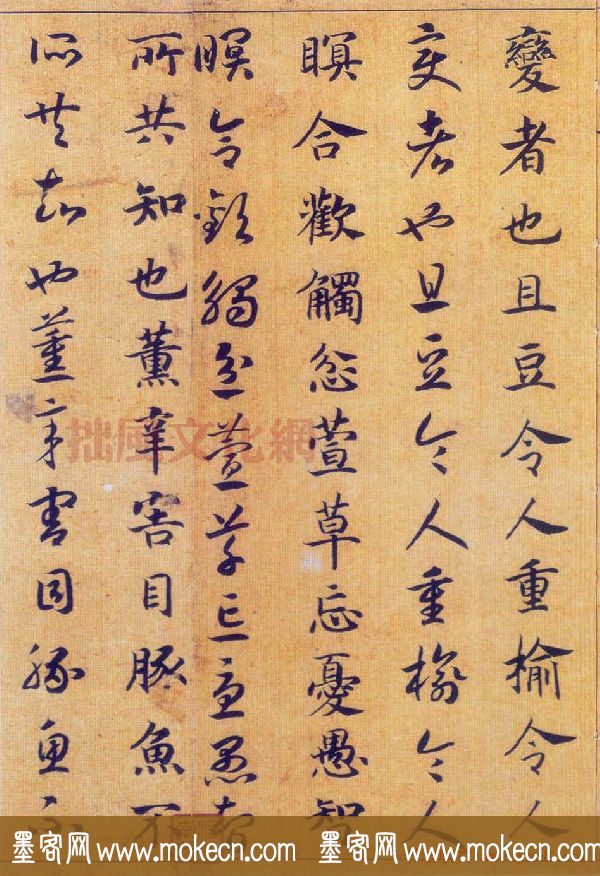 變者也且豆令人重榆令人
變者也且豆令人重榆令人
瞑合歡觸忿萱草忘憂愚知
瞑合歡觸忿萱草忘憂愚知
所共知也薰辛害目豚魚不
所共知也薰辛害目豚魚不
拙風文化網
墨客网 www.mokecn.com 墨客网 www.mokecn.com